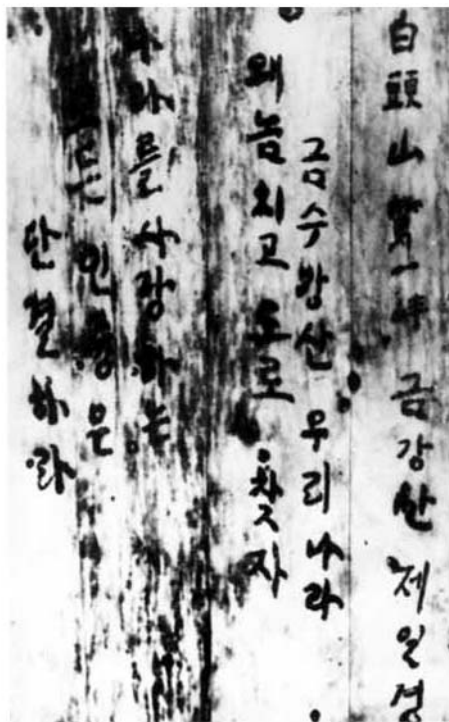 白頭山 第一峰 금강산 제일경
금수강산 우리나라
왜놈 치고 도로 찾자
나라를 사랑하는
모든
단결하라